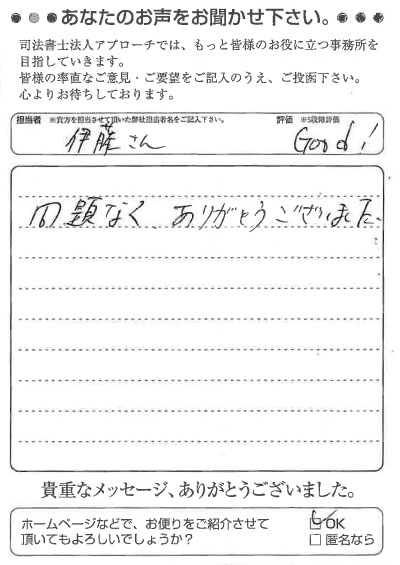 あなたのお声をお聞かせ下さい。
司法書士法人アプローチでは、もっと皆様のお役に立つ事務所を
目指していきます。
皆様の率直なご意見・ご要望をご記入のうえ、ご投函下さい。
心よりお待ちしております。
担当者 ※貴方を担当させて頂いた弊社担当者名をご記入下さい。 評価 ※5段階評価
伊藤さん Good!
問題なく、ありがとうございました。
貴重なメッセージ、ありがとうございました。
ホームページなどで、お便りをご紹介させて
頂いてもよろしいでしょうか?
☑OK
□匿名なら